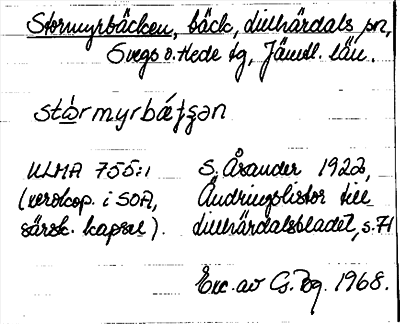 Stormyrbäcken, bäck, Lillhärdals sn,
Svegs o. Hede tg, Jämtl. län.
stårmyrbætʂən
ULMA 755:1 S. Åsander 1922,
(xerokop. i SOA, Ändringslistor till
särsk. kapsel). Lillhärdalsbladet, s. 71
Exc. av Cs. Bg. 1968.